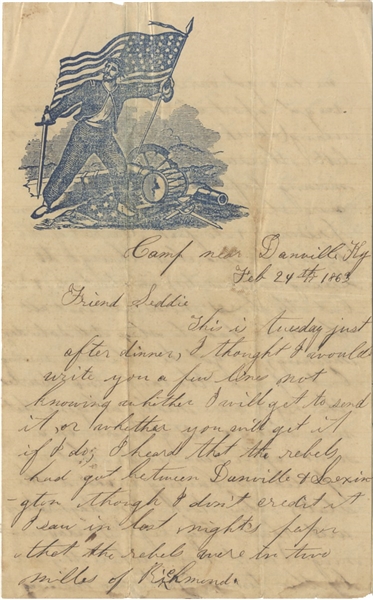 Camp near Danville Ky
Feb 24th 1863
Friend Seddie
This is tuesday just
after dinner, I thought I would
write you a few lines not
knowing whether I will get to send
it or whether you will get it
if I do, I heard that the rebels
had got between Danville & Lexin-
-gton though I don't credit it
I saw in last night's paper
that the rebels were in two
milles of Richmond.